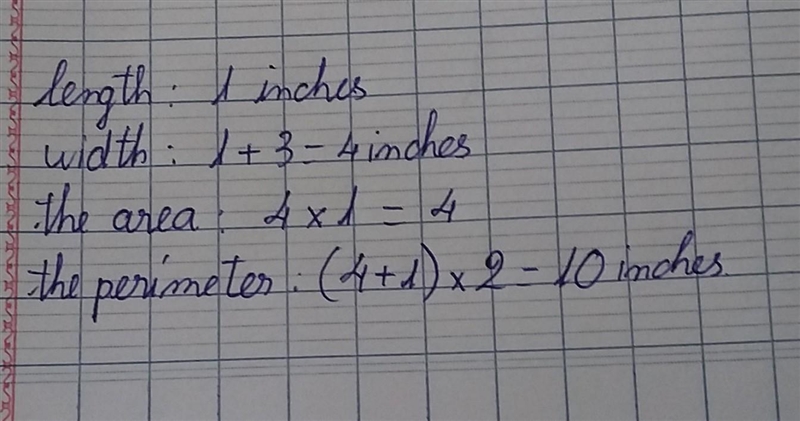 length: 1 inches
width: 1 + 3 = 4 inches
the area: 4 x 1 = 4
the perimeter: (4+1) x 2 = 10 inches